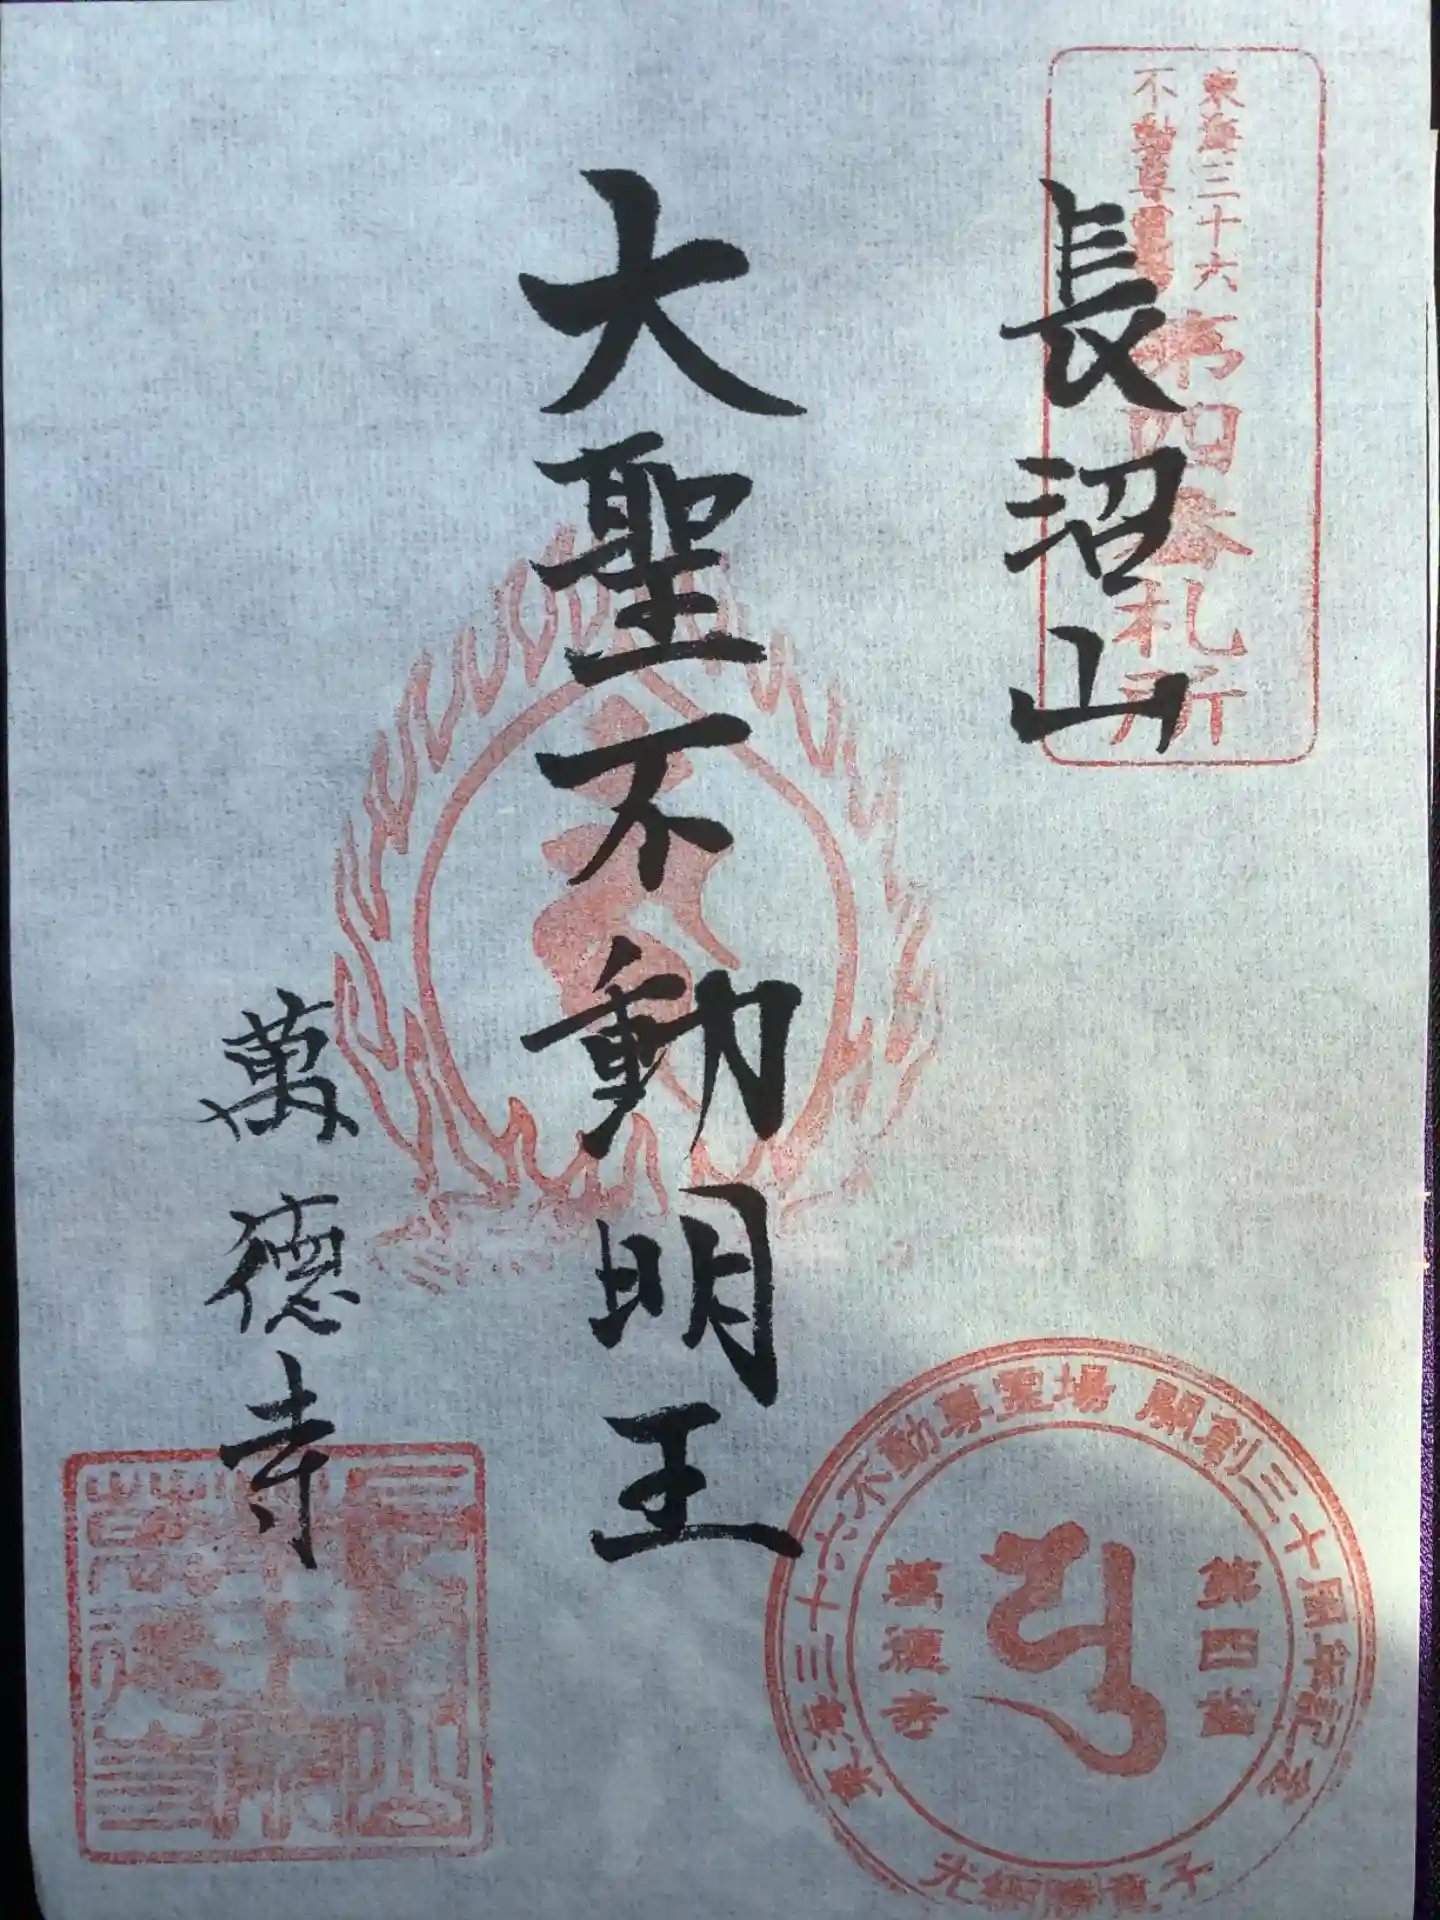 東海三十六
不動尊霊場
第四番札所
長沼山
大聖不動明王
萬德寺
東海三十六不動尊霊場 開創三十周年記念
第四番
萬徳寺
光網勝童子